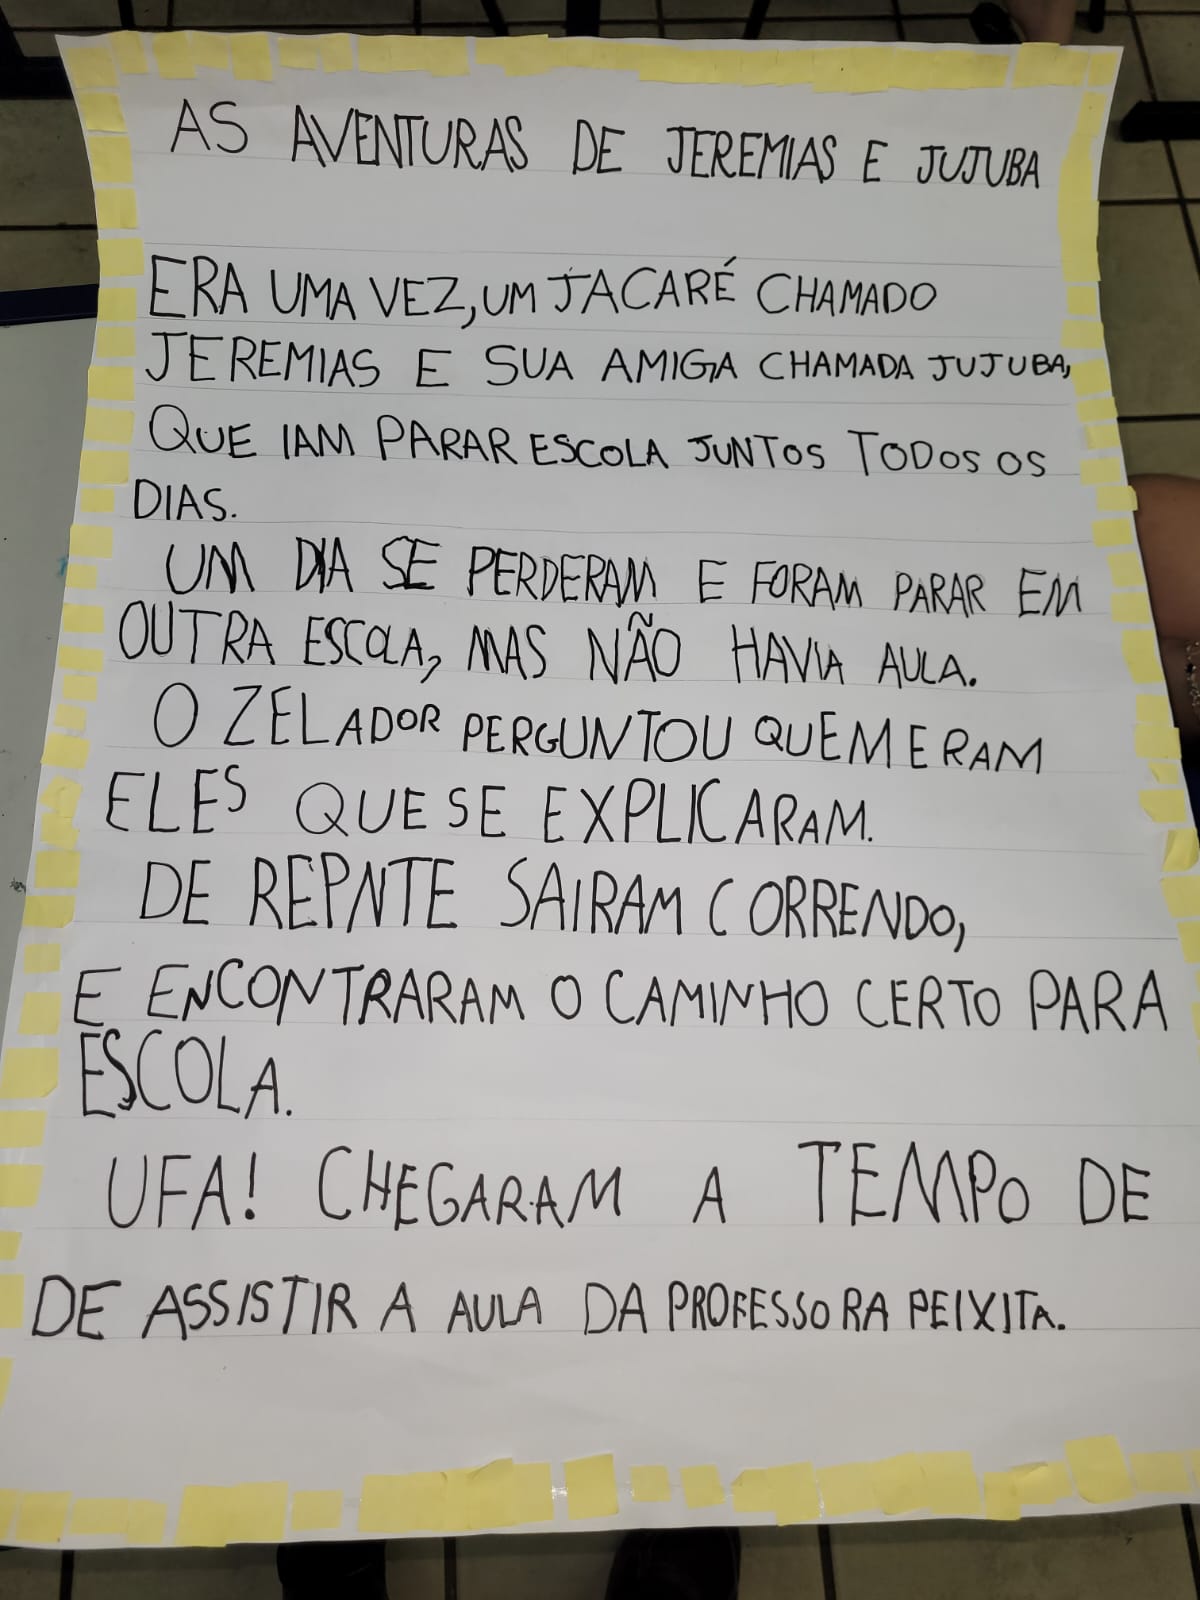 AS AVENTURAS DE JEREMIAS E JUJUBA
ERA UMA VEZ, UM JACARÉ CHAMADO
JEREMIAS E SUA AMIGA CHAMADA JUJUBA,
QUE IAM PARAR ESCOLA JUNTOS TODOS OS
DIAS.
UM DIA SE PERDERAM E FORAM PARAR EM
OUTRA ESCOLA, MAS NÃO HAVIA AULA.
O ZELADOR PERGUNTOU QUEM ERAM
ELES QUE SE EXPLICARAM.
DE REPNTE SAIRAM CORRENDO,
E ENCONTRARAM O CAMINHO CERTO PARA
ESCOLA.
UFA! CHEGARAM A TEMPO DE
DE ASSISTIR A AULA DA PROFESSORA PEIXITA.